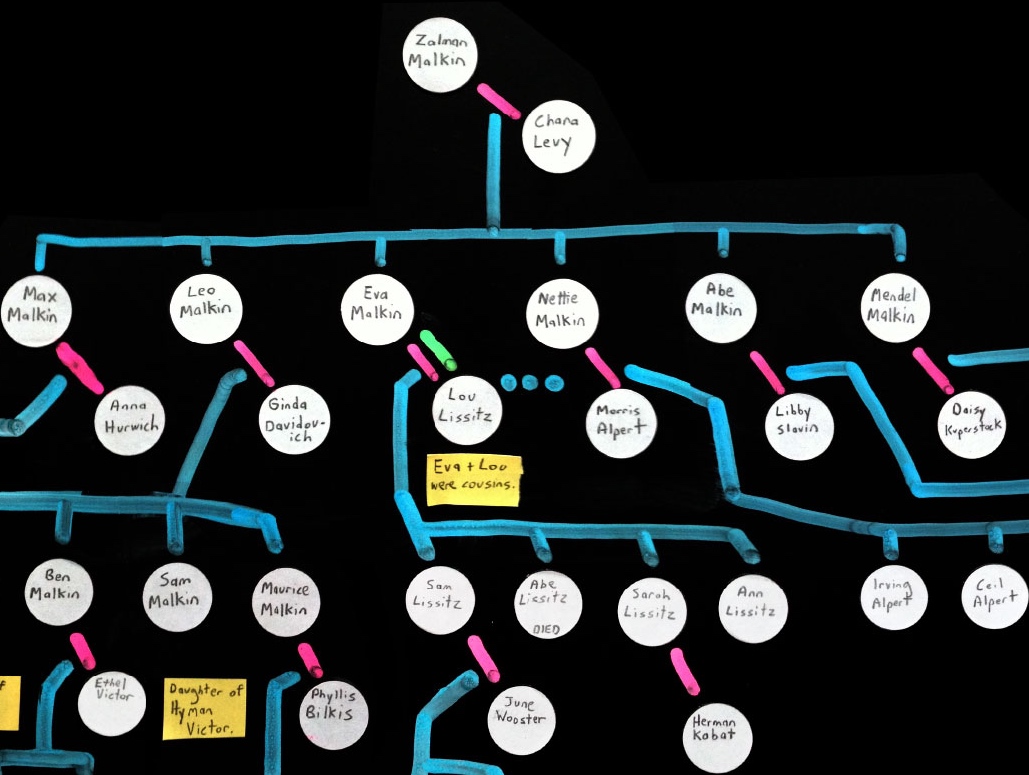 Zalman
Malkin
Chana
Levy
Max
Malkin
Leo
Malkin
Eva
Malkin
Nettie
Malkin
Abe
Malkin
Mendel
Malkin
Anna
Hurwich
Ginda
Davidov-
ich
Lou
Lissitz
Morris
Alpert
Libby
Slavin
Daisy
Kuperstock
Eva + Lou
were cousins.
Ben
Malkin
Sam
Malkin
Maurice
Malkin
Sam
Lissitz
Abe
Lissitz
DIED
Sarah
Lissitz
Ann
Lissitz
Irving
Alpert
Ceil
Alpert
Ethel
Victor
Daughter of
Hyman
Victor.
Phyllis
Bilkis
June
Wooster
Herman
Kabat